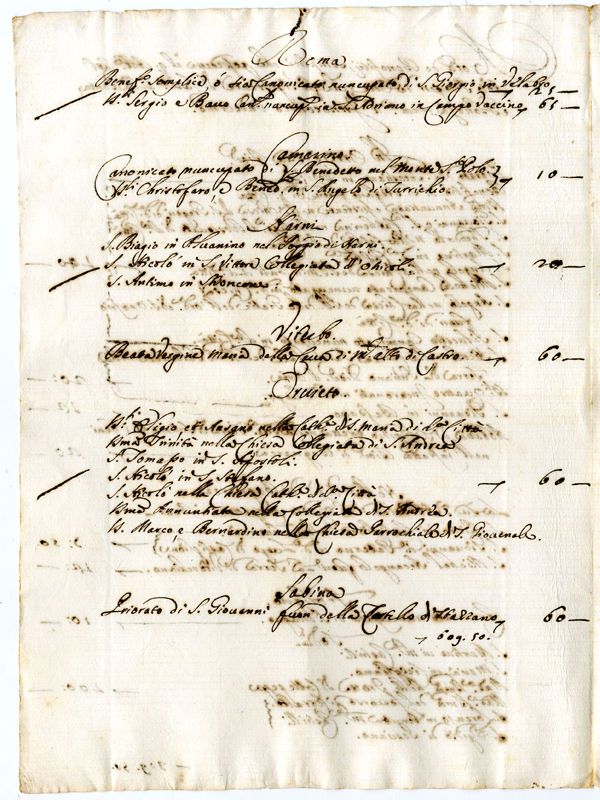 Roma
Benef.º Semplice ó sia Canonicato nuncupato di S. Giorgio in Velabro 25 —
SS.ti Sergio e Bacco Can.to nuncup.to in S. Adriano in Campo Vaccino 65 —
Camarino.
Canonicato nuncupato di S. Benedetto nel Monte S. Polo
SS.ti Christofaro, e Bened.to in S. Angelo di 10 —
Narni
S. Biagio in nel di Narni.
S. Nicoló in S. Vittore Collegiata d'Otricoli 20 —
S. Antimo in
Viterbo.
Beata Vergine Maria della di M.alto di Castro. 60 —
Orvieto.
SS.ti Eligio et nella Cath.le di S. Maria di d.a Città
SS.ma Trinità nella Chiesa Collegiata di S. Andrea
S. Tomasso in S. Apostoli.
S. Nicoló in S. Stefano.
S. Nicoló nella Chiesa Cath.le di d.a Città 60 —
SS.ma Annunziata nella Collegiata di S. Andrea.
SS. Marco, e Bernardino nella Chiesa Parrochiale di S. Giovenale.
Sabina
Priorato di S. Giovanni fuori della Castello di 60 —
609. 50.